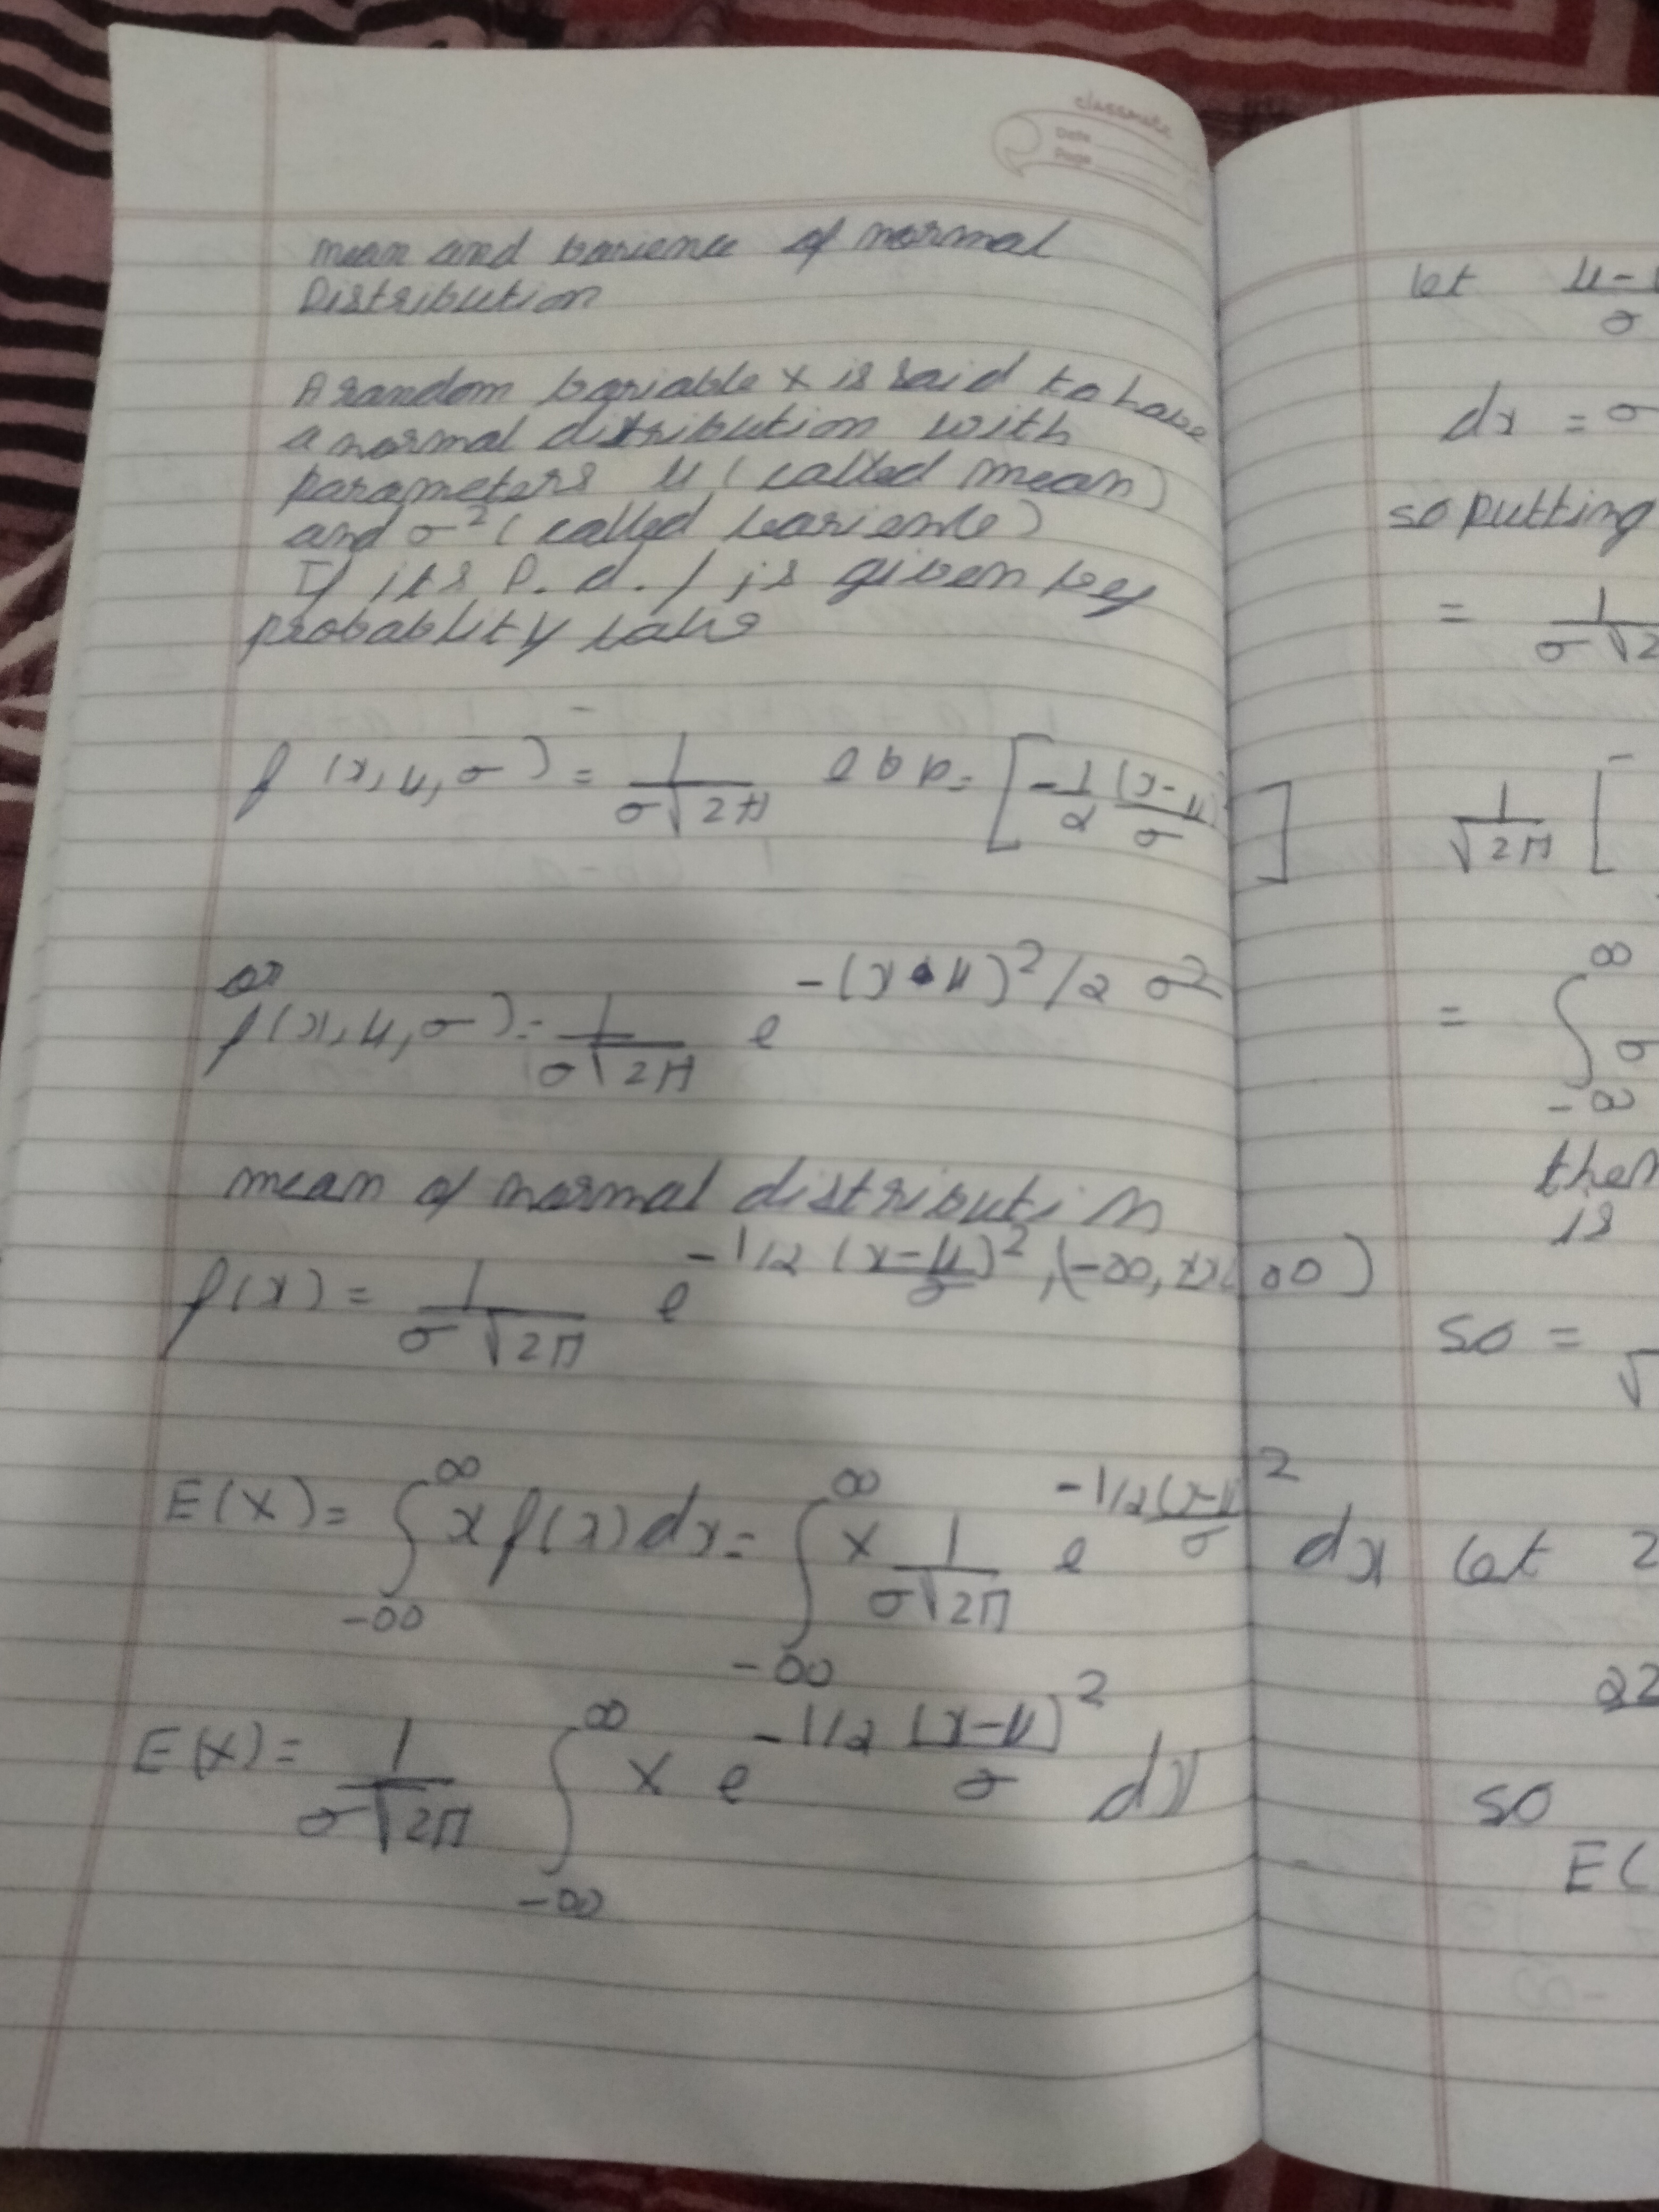 classmate
Date
Page
mean and varience of normal
Distribution
A random variable x is said to have
a normal distribution with
parameters μ (called mean)
and σ² (called varience)
If its P.d.f is given by
probablity laws
f (x, μ, σ) = 1/σ√2π [-1/2 (x-μ)²/σ]
or
f(x, μ, σ) = 1/σ√2π e^-(x-μ)²/2σ²
mean of normal distributin
f(x) = 1/σ√2π e^-1/2 (x-μ/σ)², (-∞, ∞)
E(x) = ∫_-∞^∞ x f(x) dx = ∫_-∞^∞ x 1/σ√2π e^-1/2 (x-μ/σ)² dx
E(x) = 1/σ√2π ∫_-∞^∞ x e^-1/2 (x-μ/σ)² dx
let
dx = σ
so putting
= 1/σ√2
1/√2π [
= ∫_-∞^∞
then
is
so =
let
so
E(